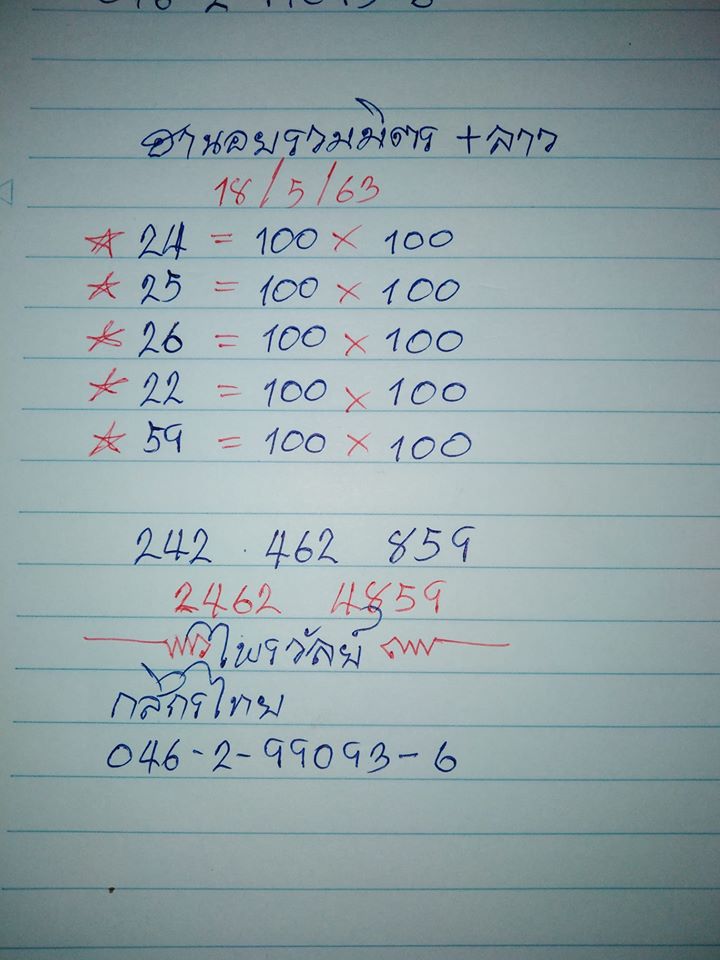 ฮานอยรวมมิตร + ลาว
18/5/63
24 = 100 × 100
25 = 100 × 100
26 = 100 × 100
22 = 100 × 100
59 = 100 × 100
242 462 859
2462 4859
ไพรวัลย์
กสิกรไทย
046-2-99093-6